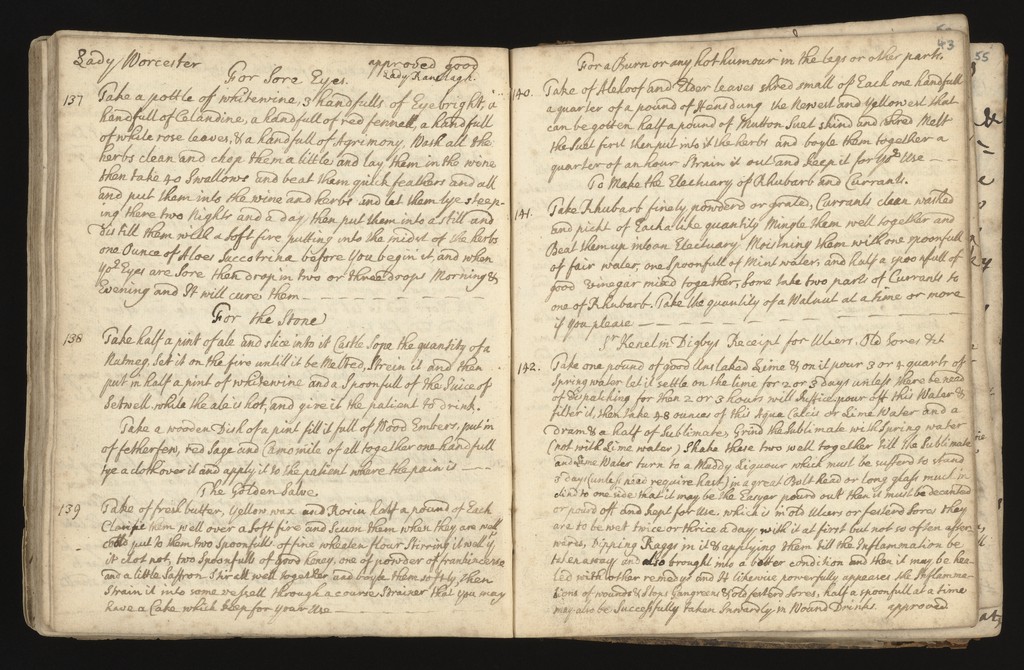 Lady Worcester
approved good
Lady Ranelagh.
For Sore Eyes.
137 Take a pottle of whitewine, 3 handfulls of Eyebright, a
handfull of Calandine, a handfull of red fennell, a handfull
of white rose leaves, & a handfull of Agrimony, Wash all the
herbs clean and chop them a little and lay them in the wine
then take 40 Swallows and beat them guts feathers and all
and put them into the wine and herbs and let them lye steep-
ing there two Nights and a day then put them into a still and
distill them with a soft fire putting into the midst of the herbs
one Ounce of Aloes Saccotrina before you begin it, and when
yor Eyes are Sore then drop in two or three drops Morning &
Evening and It will cure them
For the Stone
138 Take half a pint of ale and slice into it Castle Sope the quantity of a
Nutmeg. Set it on the fire untill it be Melted, Strein it and then
put in half a pint of whitewine and a Spoonfull of the Juice of
Setwell. while the ale is hot, and give it the patient to drink.
Take a wooden Dish of a pint fill it full of Wood Embers, put in
of fetherfew, red Sage and Camomile of all together one handfull
tye a cloth over it and apply it to the patient where the pain is
The Golden Salve.
139 Take of fresh butter, Yellow wax and Rosin half a pound of Each
Clarifie them well over a Soft fire and Scum them when they are well
put to them two Spoonfulls of fine wheaten flour Stirring it well yt
it clot not, two Spoonfulls of good honey, one of powder of frankincense
and a little Saffron Stirr it well together and boyle them softly, then
Strain it into some vessell through a course Strainer that you may
have a Cake which keep for your Use
43
For a Burn or any hot humour in the legs or other part.
140. Take of Alehoof and Elder leaves shred small of Each one handfull
a quarter of a pound of Hensdung the Newest and Yellowest that
can be gotten half a pound of Mutton Suet skind and shred Melt
the Suet first then put into it the herbs and boyle them together a
quarter of an hour Strain it out and keep it for yor Use
To Make the Electuary of Rhubarb and Currants.
141. Take Rhubarb finely powderd or grated, Currants clean washed
and pickt of Each a like quantity Mingle them well together and
Beat them up into an Electuary Moistning them with one spoonfull
of fair water, one Spoonfull of Mint water, and half a spoonfull of
good vinegar mixd together, some take two parts of Currants to
one of Rhubarb. Take the quantity of a Walnut at a time or more
if you please
Sr Kenelm Digbys Receipt for Ulcers. Old Sores &t
142. Take one pound of good Unslaked Lime & on it pour 3 or 4 quarts of
Spring water let it settle on the lime for 2 or 3 days unless there be need
of dispatching for then 2 or 3 hours will Suffice. pour off this Water &
filter it, then take 48 ounces of this Aqua Calcis or Lime Water and a
Dram & a half of Sublimate, Grind the Sublimate with Spring water
(not with Lime water) Shake these two well together till the Sublimate
and Lime Water turn to a Muddy Liquour which must be sufferd to stand
days (unless need require hast) in a great Bolt head or long glass much in-
clind to one side that it may be the Easyer pourd out then it must be decanted
or pourd off and kept for Use. which is in old Ulcers or festerd Sores they
are to be wet twice or thrice a day with it at first but not so often after
wards, dipping Raggs in it & applying them till the Inflammation be
taken away and also brought into a better condition and then it may be hea-
led with other remedys and It likewise powerfully appeases the Inflamma-
tions of wounds & Stops Gangreens & Old festerd Sores, half a spoonfull at a time
may also be Successfully taken Inwardly in Wound Drinks. approved
55